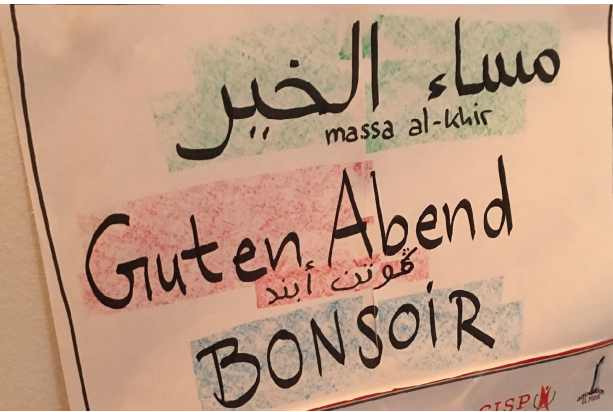 مساء الخير
massa al-khir
Guten Abend
ڤوتن أبند
BONSOIR
CISP